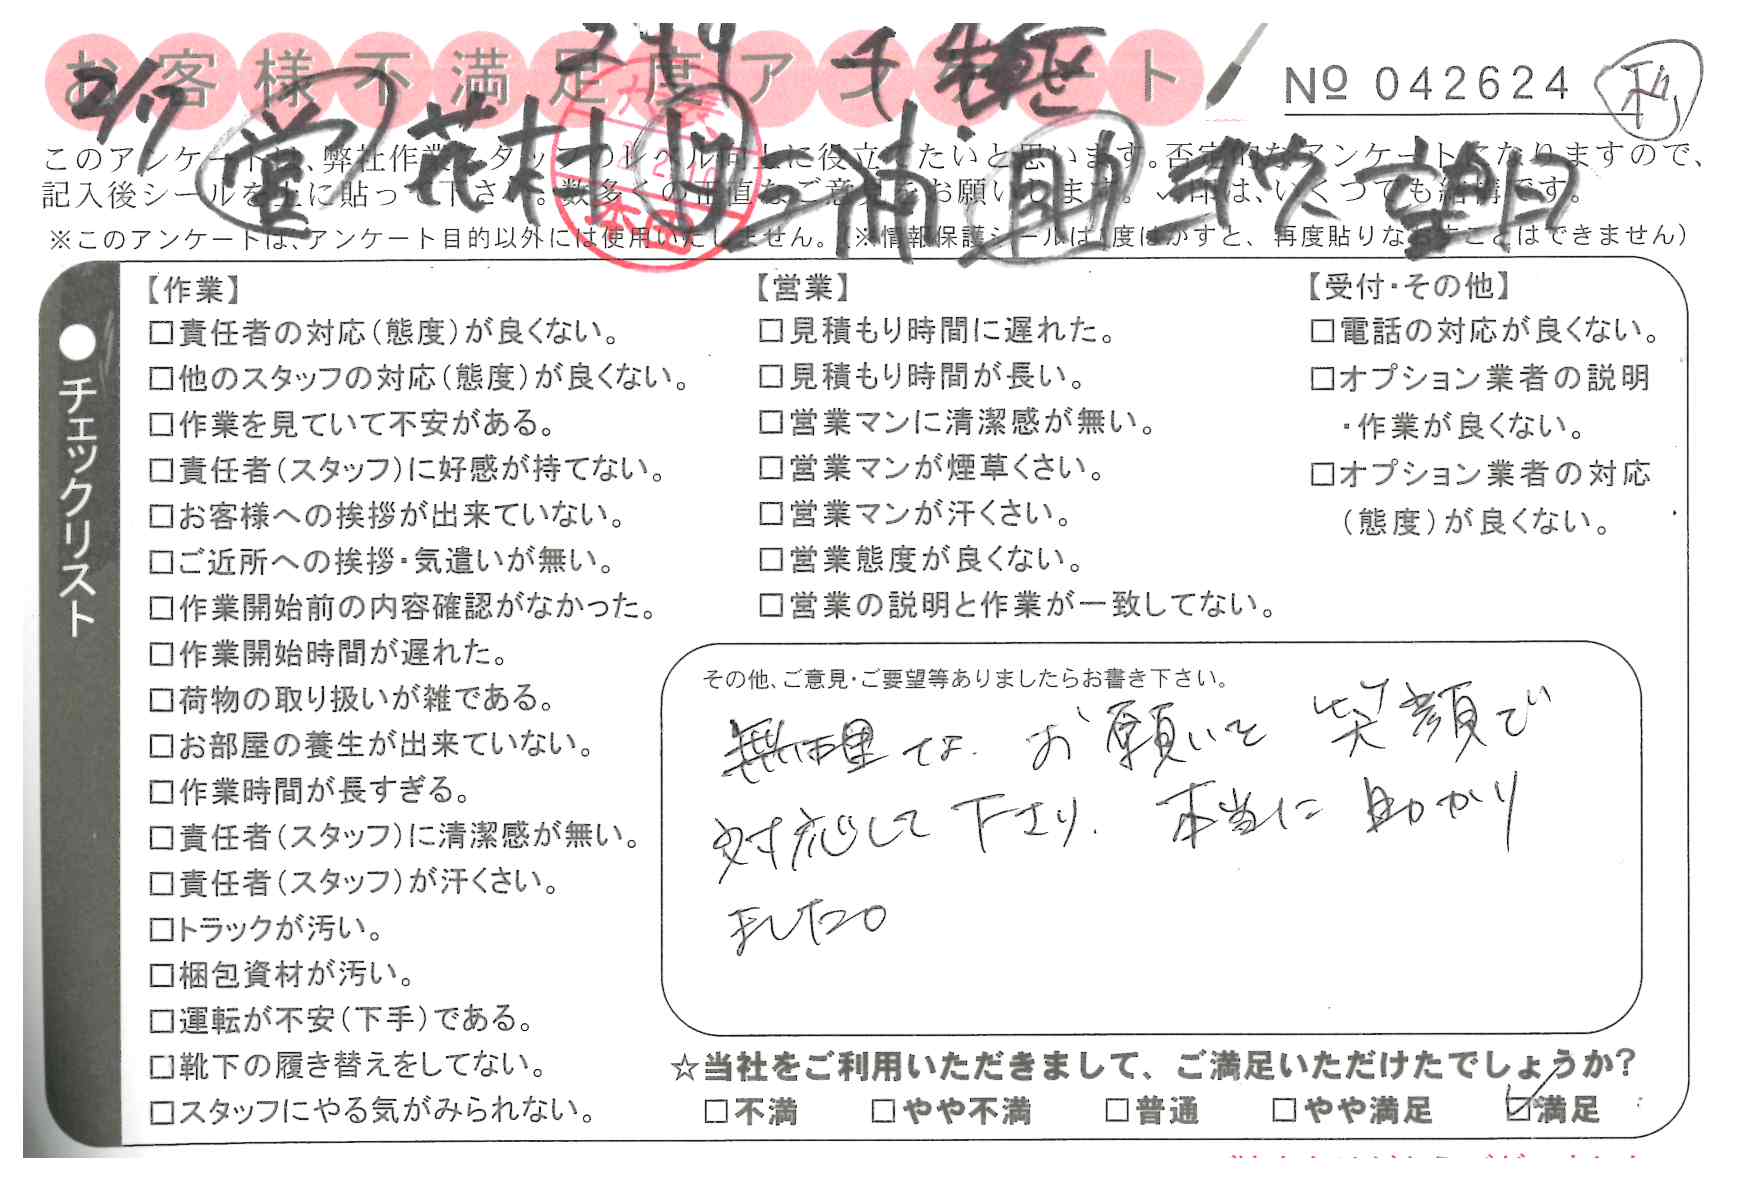 お客様不満足度アンケート
№ 042624
2/17
このアンケートは、弊社作業スタッフのレベル向上に役立てたいと思います。否定的なアンケートになりますので、
記入後シールを上に貼って下さい。数多くの正直なご意見をお願いします。✓印は、いくつでも結構です。
※このアンケートは、アンケート目的以外には使用いたしません。(※情報保護シールは1度はがすと、再度貼りなおすことはできません)
●チェックリスト
【作業】
□責任者の対応(態度)が良くない。
□他のスタッフの対応(態度)が良くない。
□作業を見ていて不安がある。
□責任者(スタッフ)に好感が持てない。
□お客様への挨拶が出来ていない。
□ご近所への挨拶・気遣いが無い。
□作業開始前の内容確認がなかった。
□作業開始時間が遅れた。
□荷物の取り扱いが雑である。
□お部屋の養生が出来ていない。
□作業時間が長すぎる。
□責任者(スタッフ)に清潔感が無い。
□責任者(スタッフ)が汗くさい。
□トラックが汚い。
□梱包資材が汚い。
□運転が不安(下手)である。
□靴下の履き替えをしてない。
□スタッフにやる気がみられない。
【営業】
□見積もり時間に遅れた。
□見積もり時間が長い。
□営業マンに清潔感が無い。
□営業マンが煙草くさい。
□営業マンが汗くさい。
□営業態度が良くない。
□営業の説明と作業が一致してない。
【受付・その他】
□電話の対応が良くない。
□オプション業者の説明
・作業が良くない。
□オプション業者の対応
(態度)が良くない。
その他、ご意見・ご要望等ありましたらお書き下さい。
無理なお願いを笑顔で
対応して下さり、本当に助かり
ました。
☆当社をご利用いただきまして、ご満足いただけたでしょうか?
□不満 □やや不満 □普通 □やや満足 ☑満足